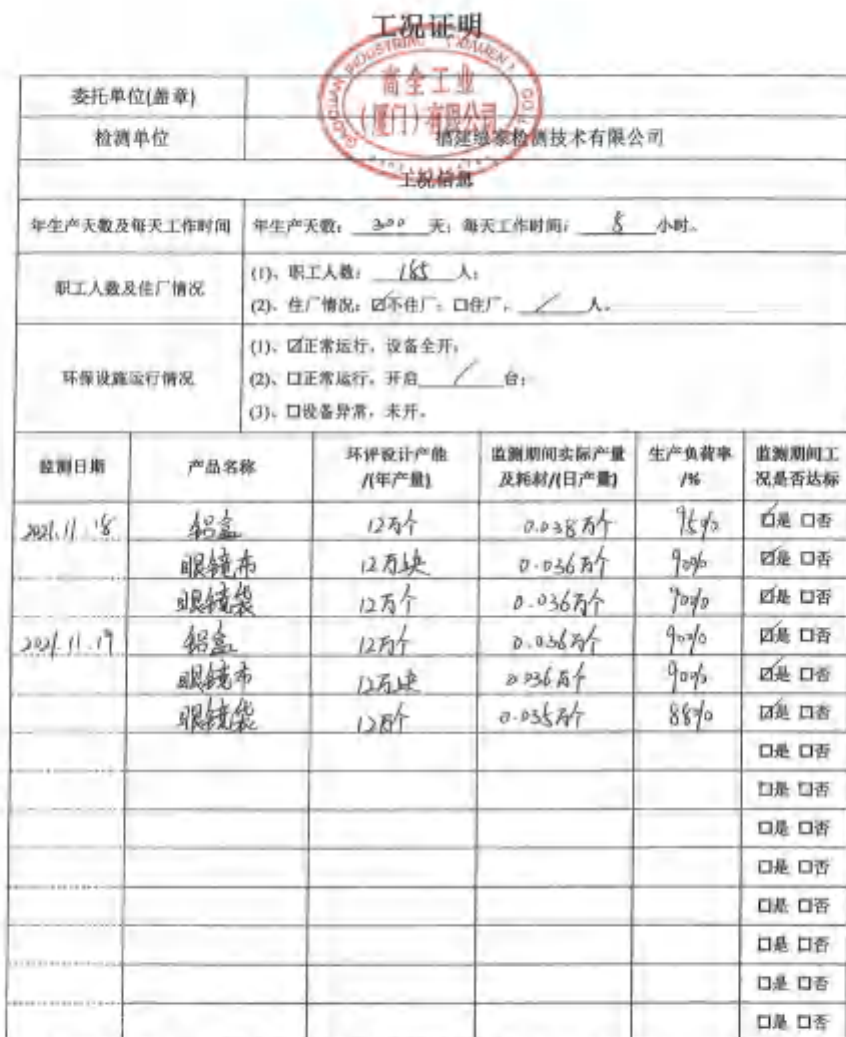 工况证明
委托单位(盖章)
高全工业
(厦门)有限公司
检测单位 福建 检测技术有限公司
工况信息
年生产天数及每天工作时间 年生产天数: 300 天; 每天工作时间: 8 小时。
职工人数及住厂情况
(1)、职工人数: 185 人;
(2)、住厂情况: ☑不住厂; □住厂, / 人。
环保设施运行情况
(1)、☑正常运行, 设备全开;
(2)、□正常运行, 开启 / 台;
(3)、□设备异常, 未开。
监测日期 产品名称 环评设计产能/(年产量) 监测期间实际产量及耗材/(日产量) 生产负荷率/% 监测期间工况是否达标
2021.11.18 铝盒 12万个 0.038万个 95% ☑是 □否
眼镜布 12万块 0.036万个 90% ☑是 □否
眼镜袋 12万个 0.036万个 90% ☑是 □否
2021.11.19 铝盒 12万个 0.036万个 90% ☑是 □否
眼镜布 12万块 0.036万个 90% ☑是 □否
眼镜袋 12万个 0.035万个 88% ☑是 □否
□是 □否
□是 □否
□是 □否
□是 □否
□是 □否
□是 □否
□是 □否
□是 □否